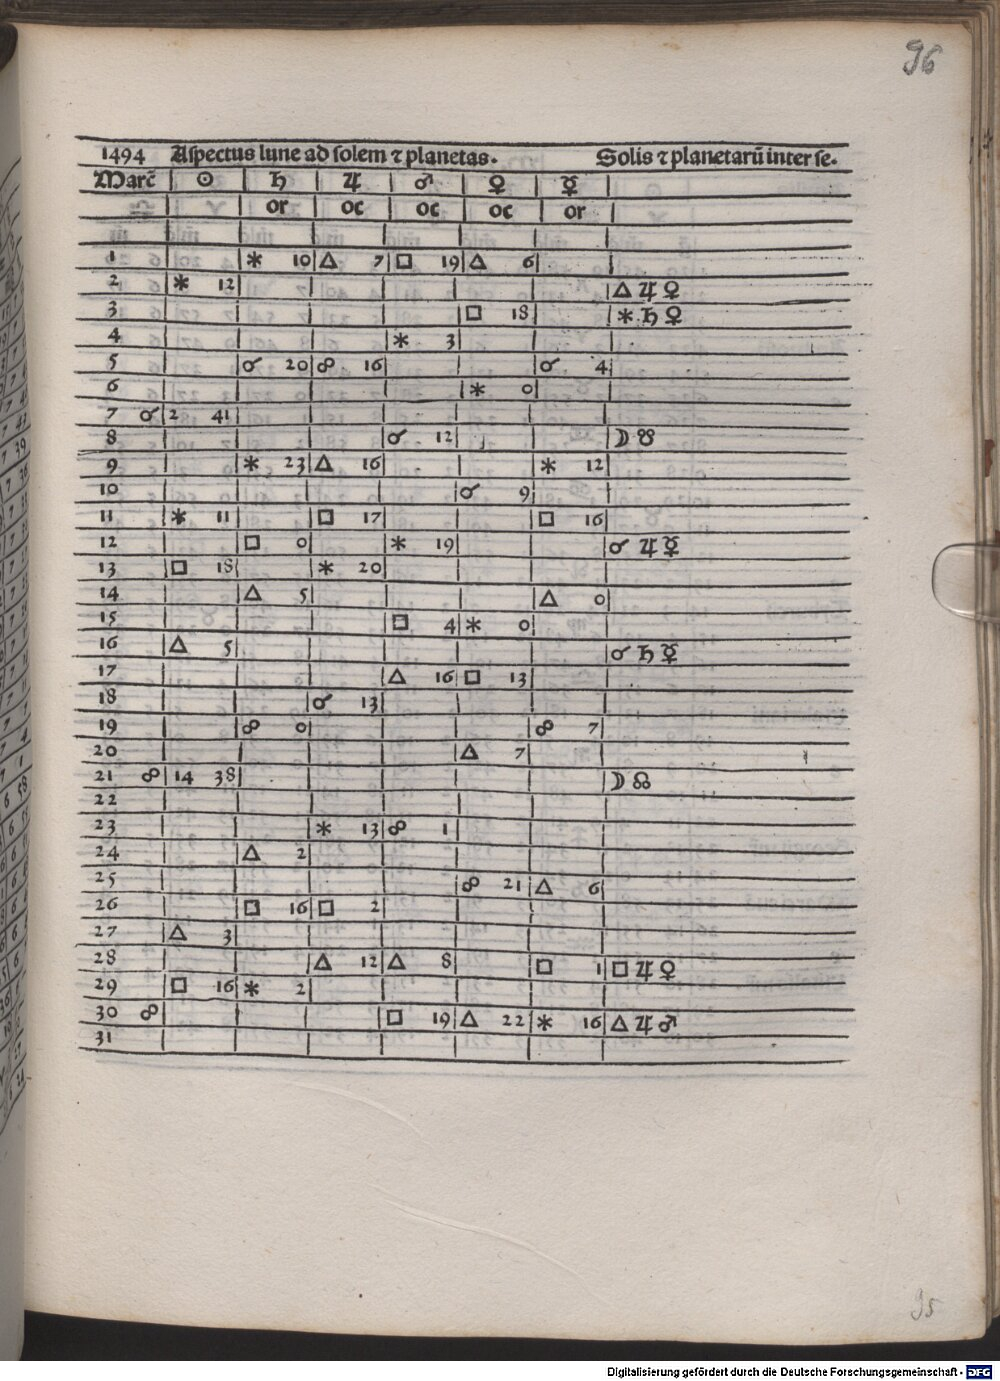 96
1494 Aspectus lune ad solem ⁊ planetas. Solis ⁊ planetarũ inter se.
Marc̃ ☉ ♄ ♃ ♂ ♀ ☿
or oc oc oc or
1 ⚹ 10 △ 7 □ 19 △ 6
2 ⚹ 12 △ ♃ ♀
3 □ 18 ⚹ ♄ ♀
4 ⚹ 3
5 ☌ 20 ☍ 16 ☌ 4
6 ⚹ 0
7 ☌ 2 41
8 ☌ 12 ☽ ☋
9 ⚹ 23 △ 16 ⚹ 12
10 ☌ 9
11 ⚹ 11 □ 17 □ 16
12 □ 0 ⚹ 19 ☌ ♃ ☿
13 □ 18 ⚹ 20
14 △ 5 △ 0
15 □ 4 ⚹ 0
16 △ 5 ☌ ♄ ☿
17 △ 16 □ 13
18 ☌ 13
19 ☍ 0 ☍ 7
20 △ 7
21 ☍ 14 38 ☽ ☊
22
23 ⚹ 13 ☍ 1
24 △ 2
25 ☍ 21 △ 6
26 □ 16 □ 2
27 △ 3
28 △ 12 △ 8 □ 1 □ ♃ ♀
29 □ 16 ⚹ 2
30 ☍ □ 19 △ 22 ⚹ 16 △ ♃ ♂
31
95
Digitalisierung gefördert durch die Deutsche Forschungsgemeinschaft - DFG